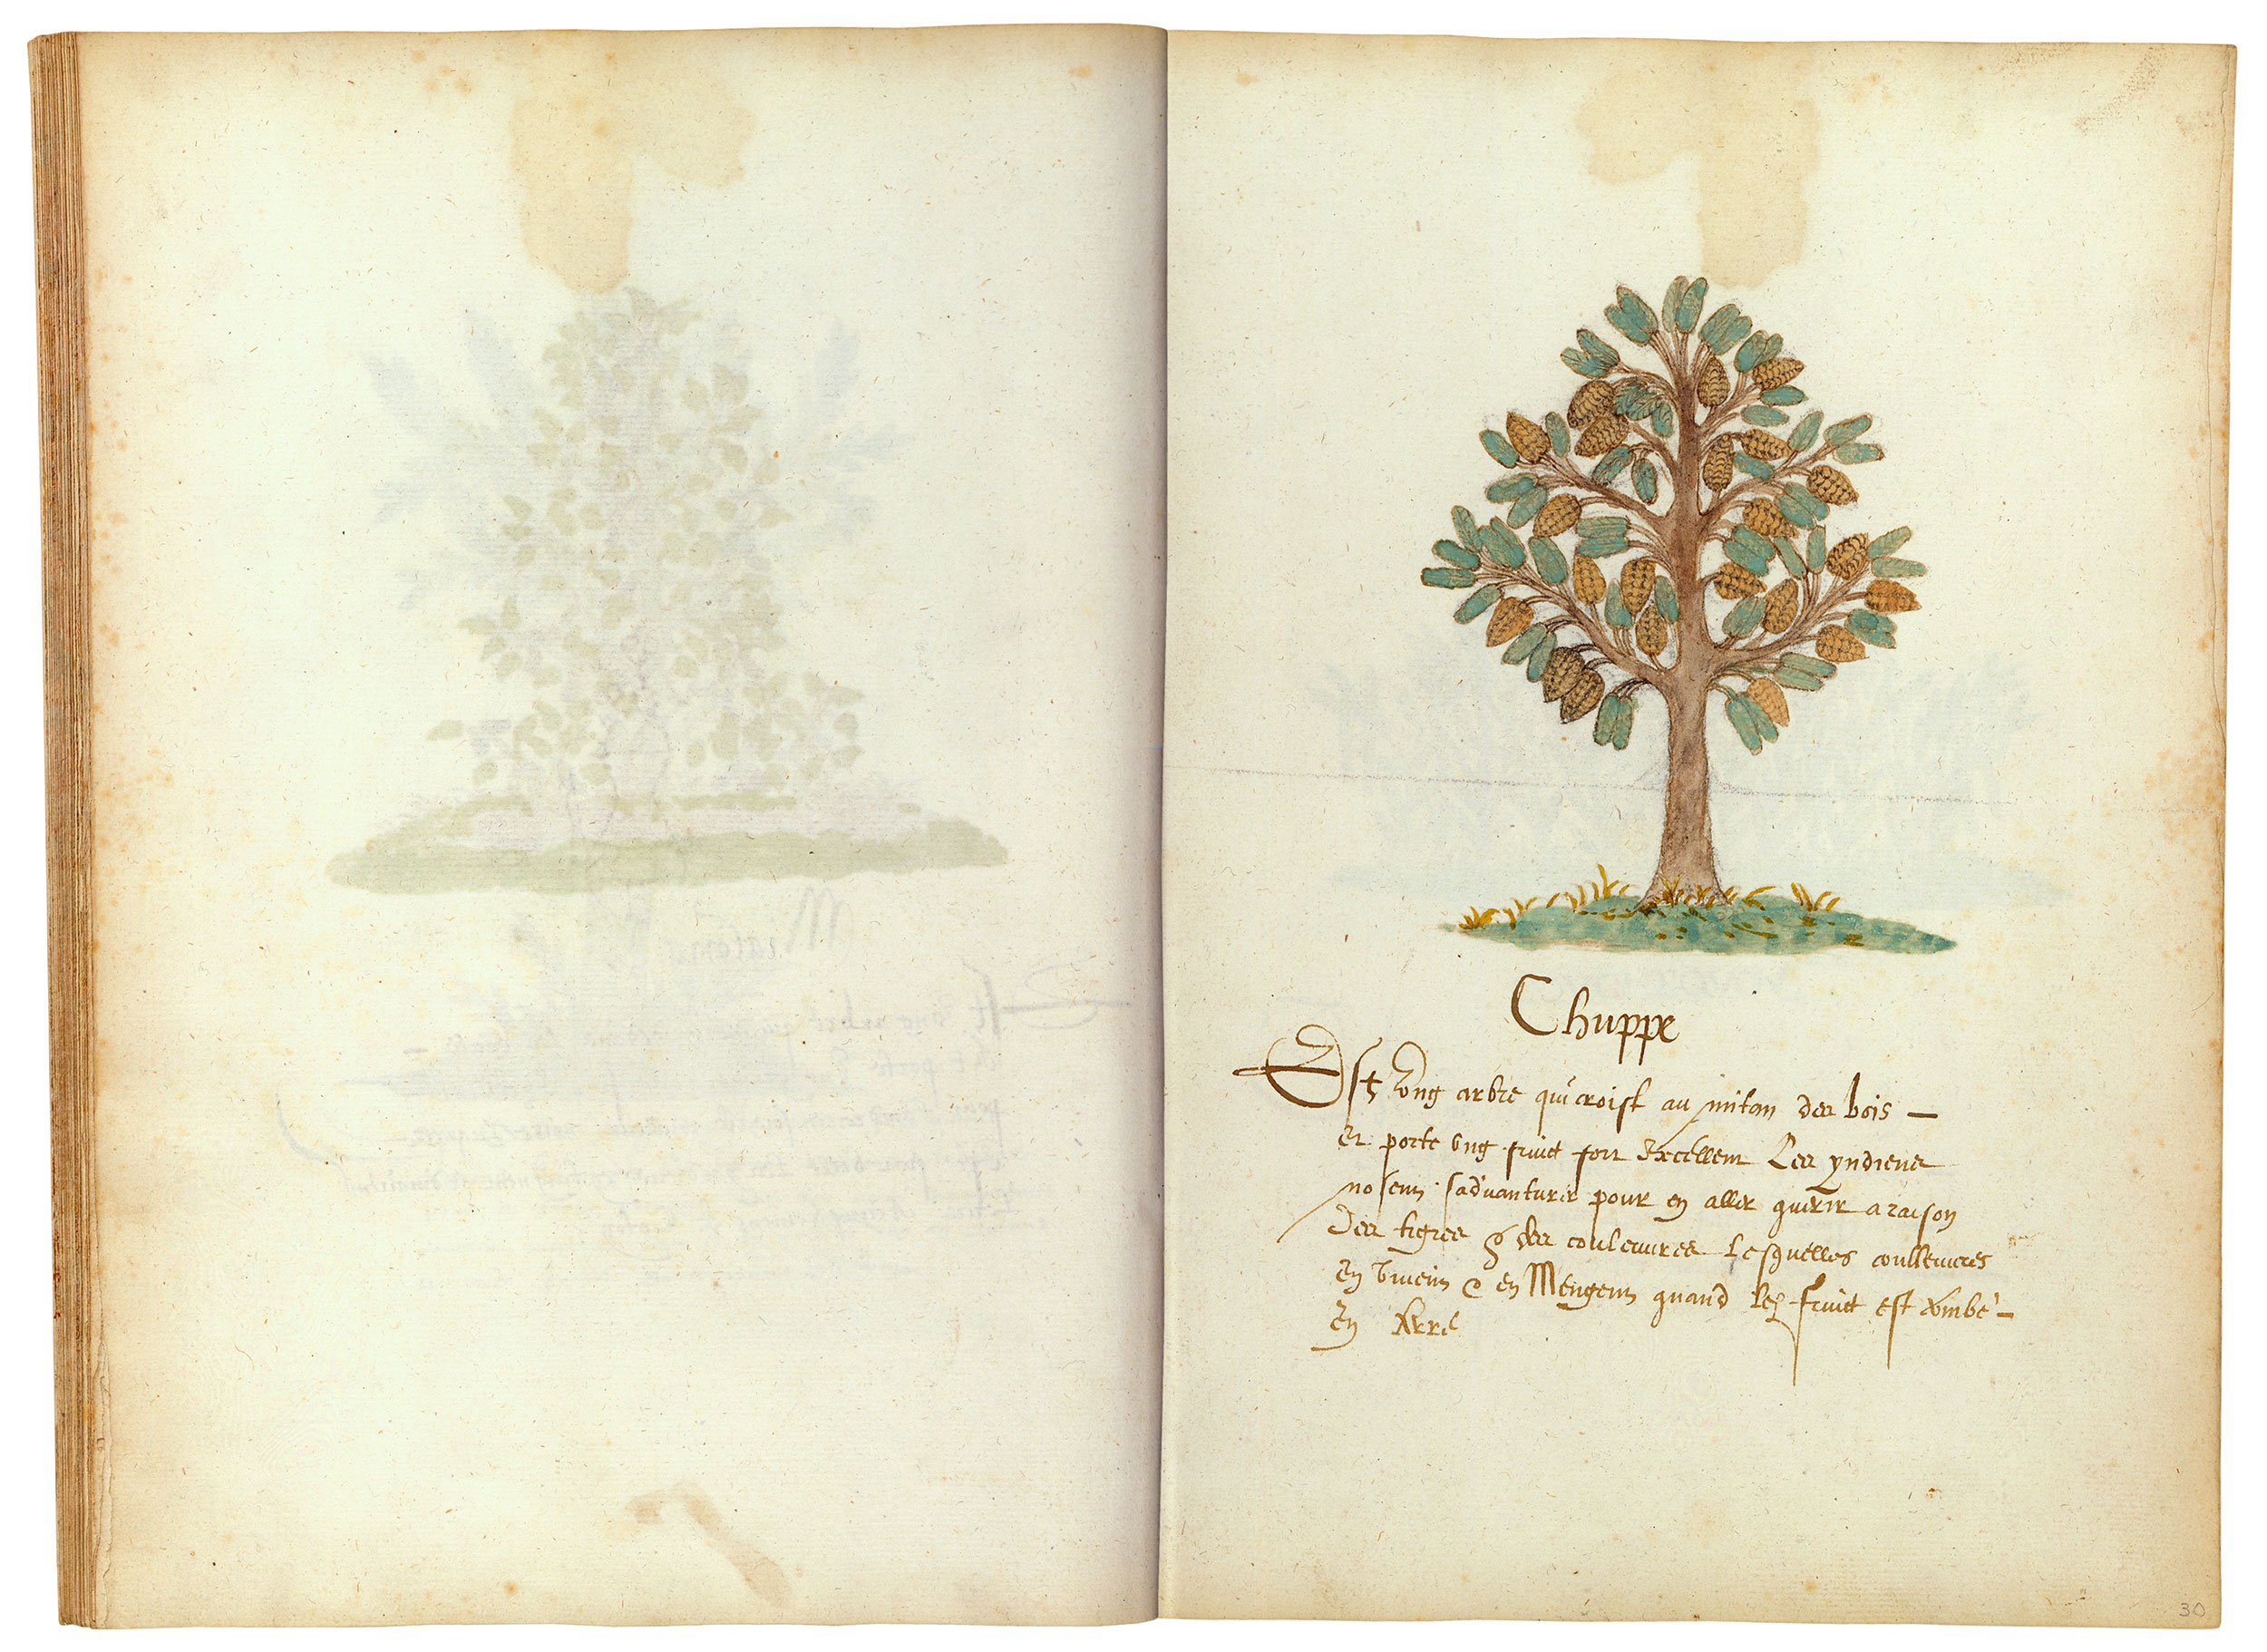 Chuppe
Est ung arbre qui croist au mitan des bois
et porte ung fruict fort excellent Les yndiens
nosent sadvanturer pour en aller querir a raison
des tigres & des couleuvres lesquelles coulleuvres
en vivent & en mengent quand le fruict est tombé
en terre
30